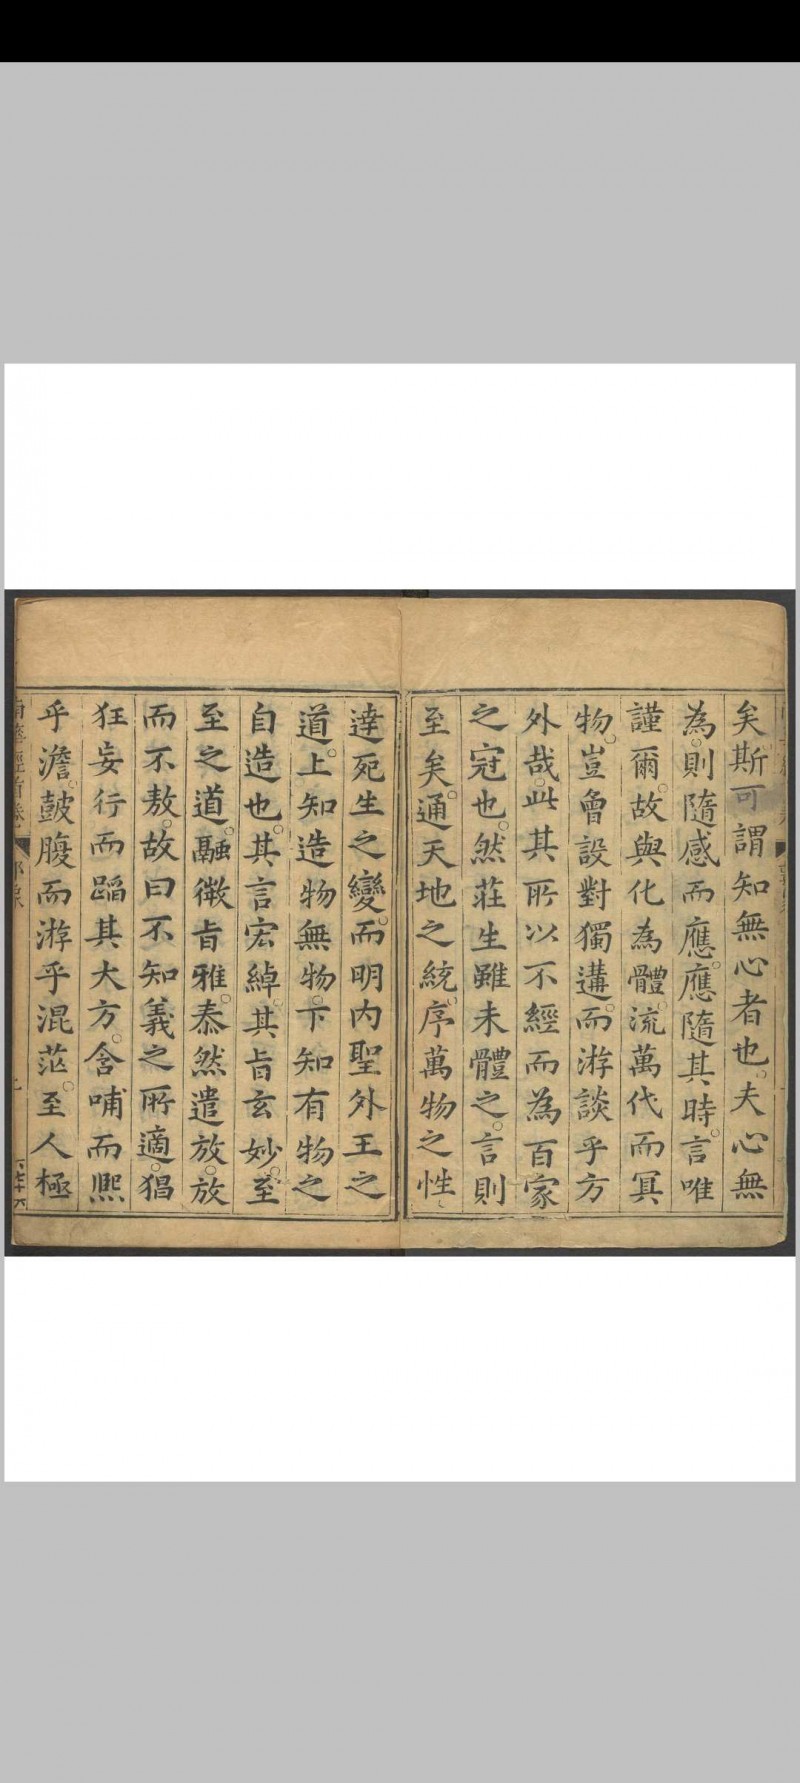 矣斯可謂知無心者也夫心無
為則隨感而應應隨其時言唯
謹爾故與化為體流萬代而冥
物豈曾設對獨遘而游談乎方
外哉此其所以不經而為百家
之冠也然莊生雖未體之言則
至矣通天地之統序萬物之性
達死生之變而明內聖外王之
道上知造物無物下知有物之
自造也其言宏綽其旨玄妙至
至之道融微旨雅泰然遣放放
而不敖故曰不知義之所適猖
狂妄行而蹈其大方含哺而熙
乎澹鼓腹而游乎混茫至人極
南華經首卷